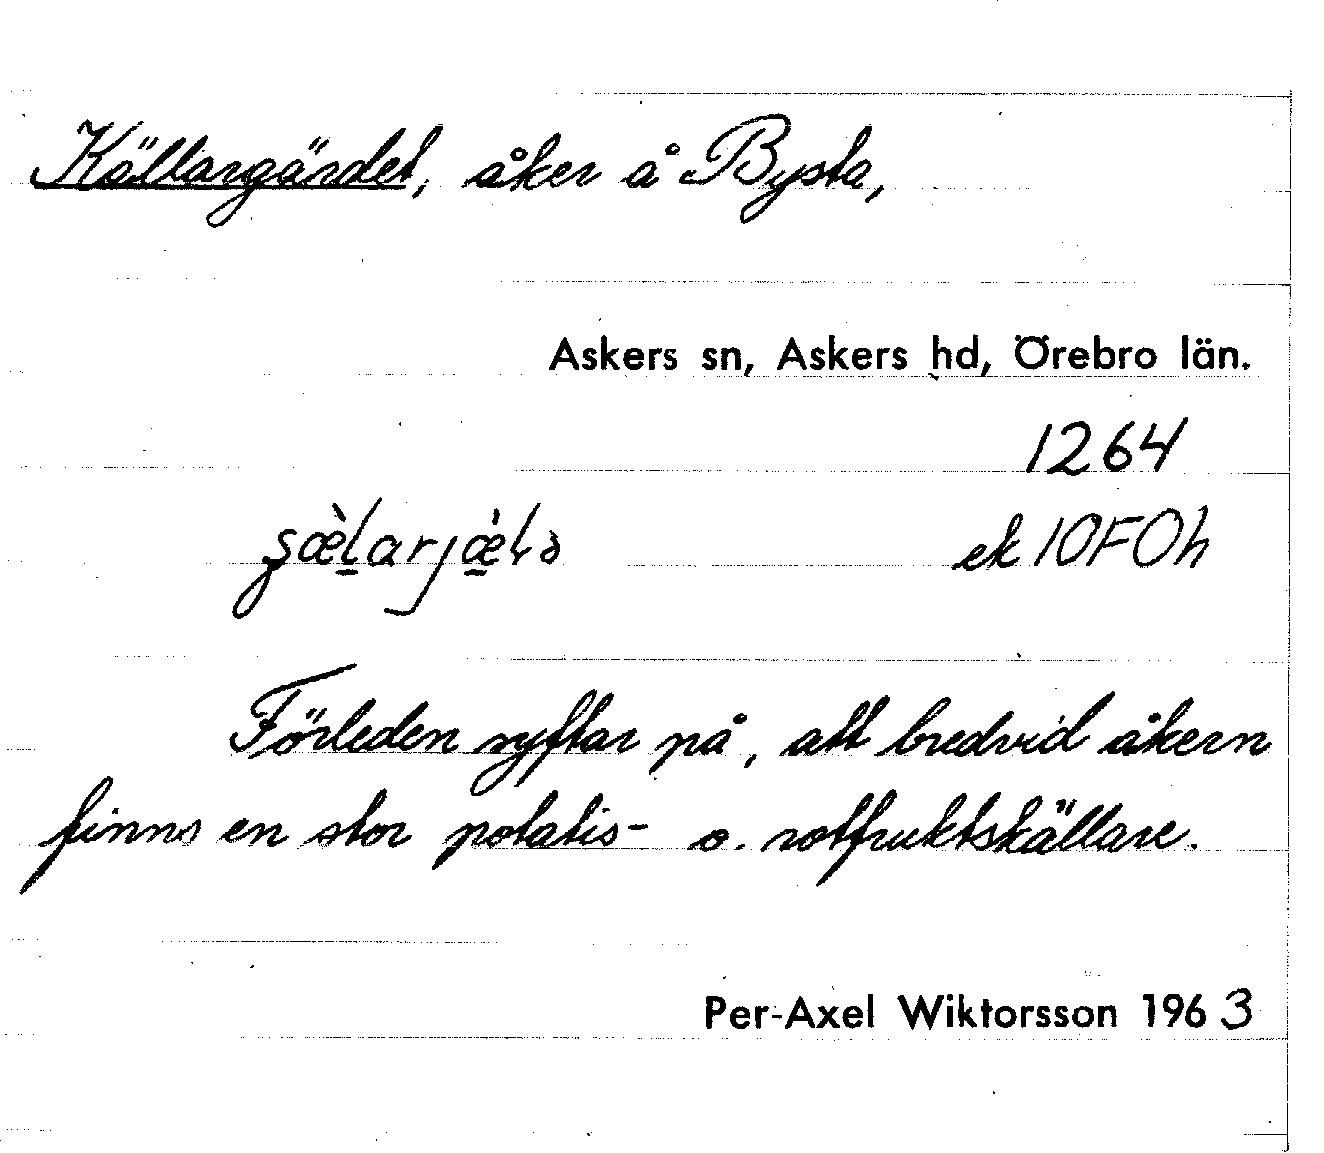 Källargärdet, åker å Bysta,
Askers sn, Askers hd, Örebro län.
1264
ek 10F0h
Förleden syftar på, att bredvid åkern
finns en stor potatis- o. rotfruktskällare.
Per-Axel Wiktorsson 1963